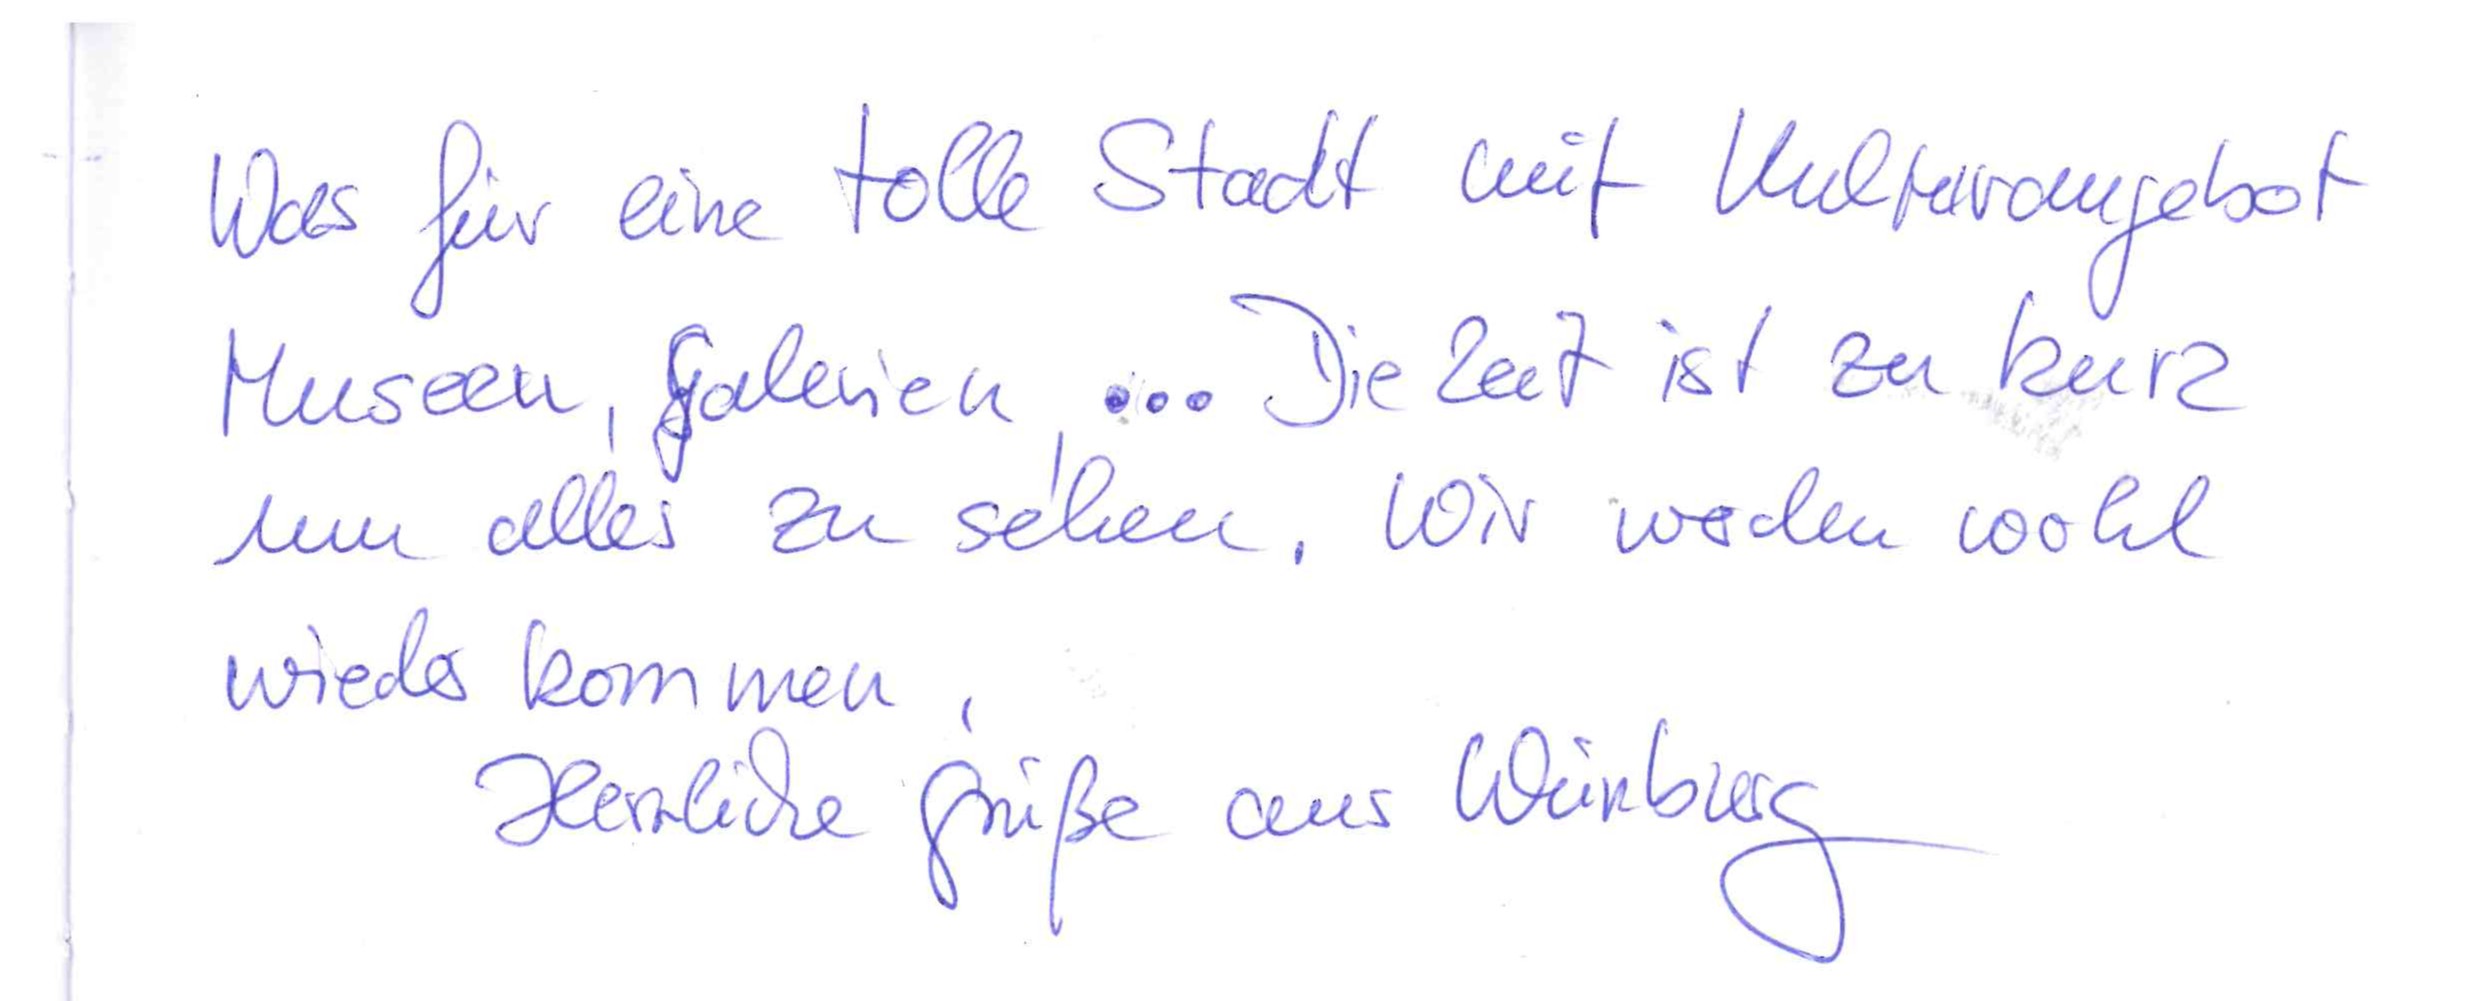 Was für eine tolle Stadt mit Kulturangebot
Museen, Galerien ... Die Zeit ist zu kurz
um alles zu sehen. Wir werden wohl
wieder kommen,
Herzliche Grüße aus Würzburg